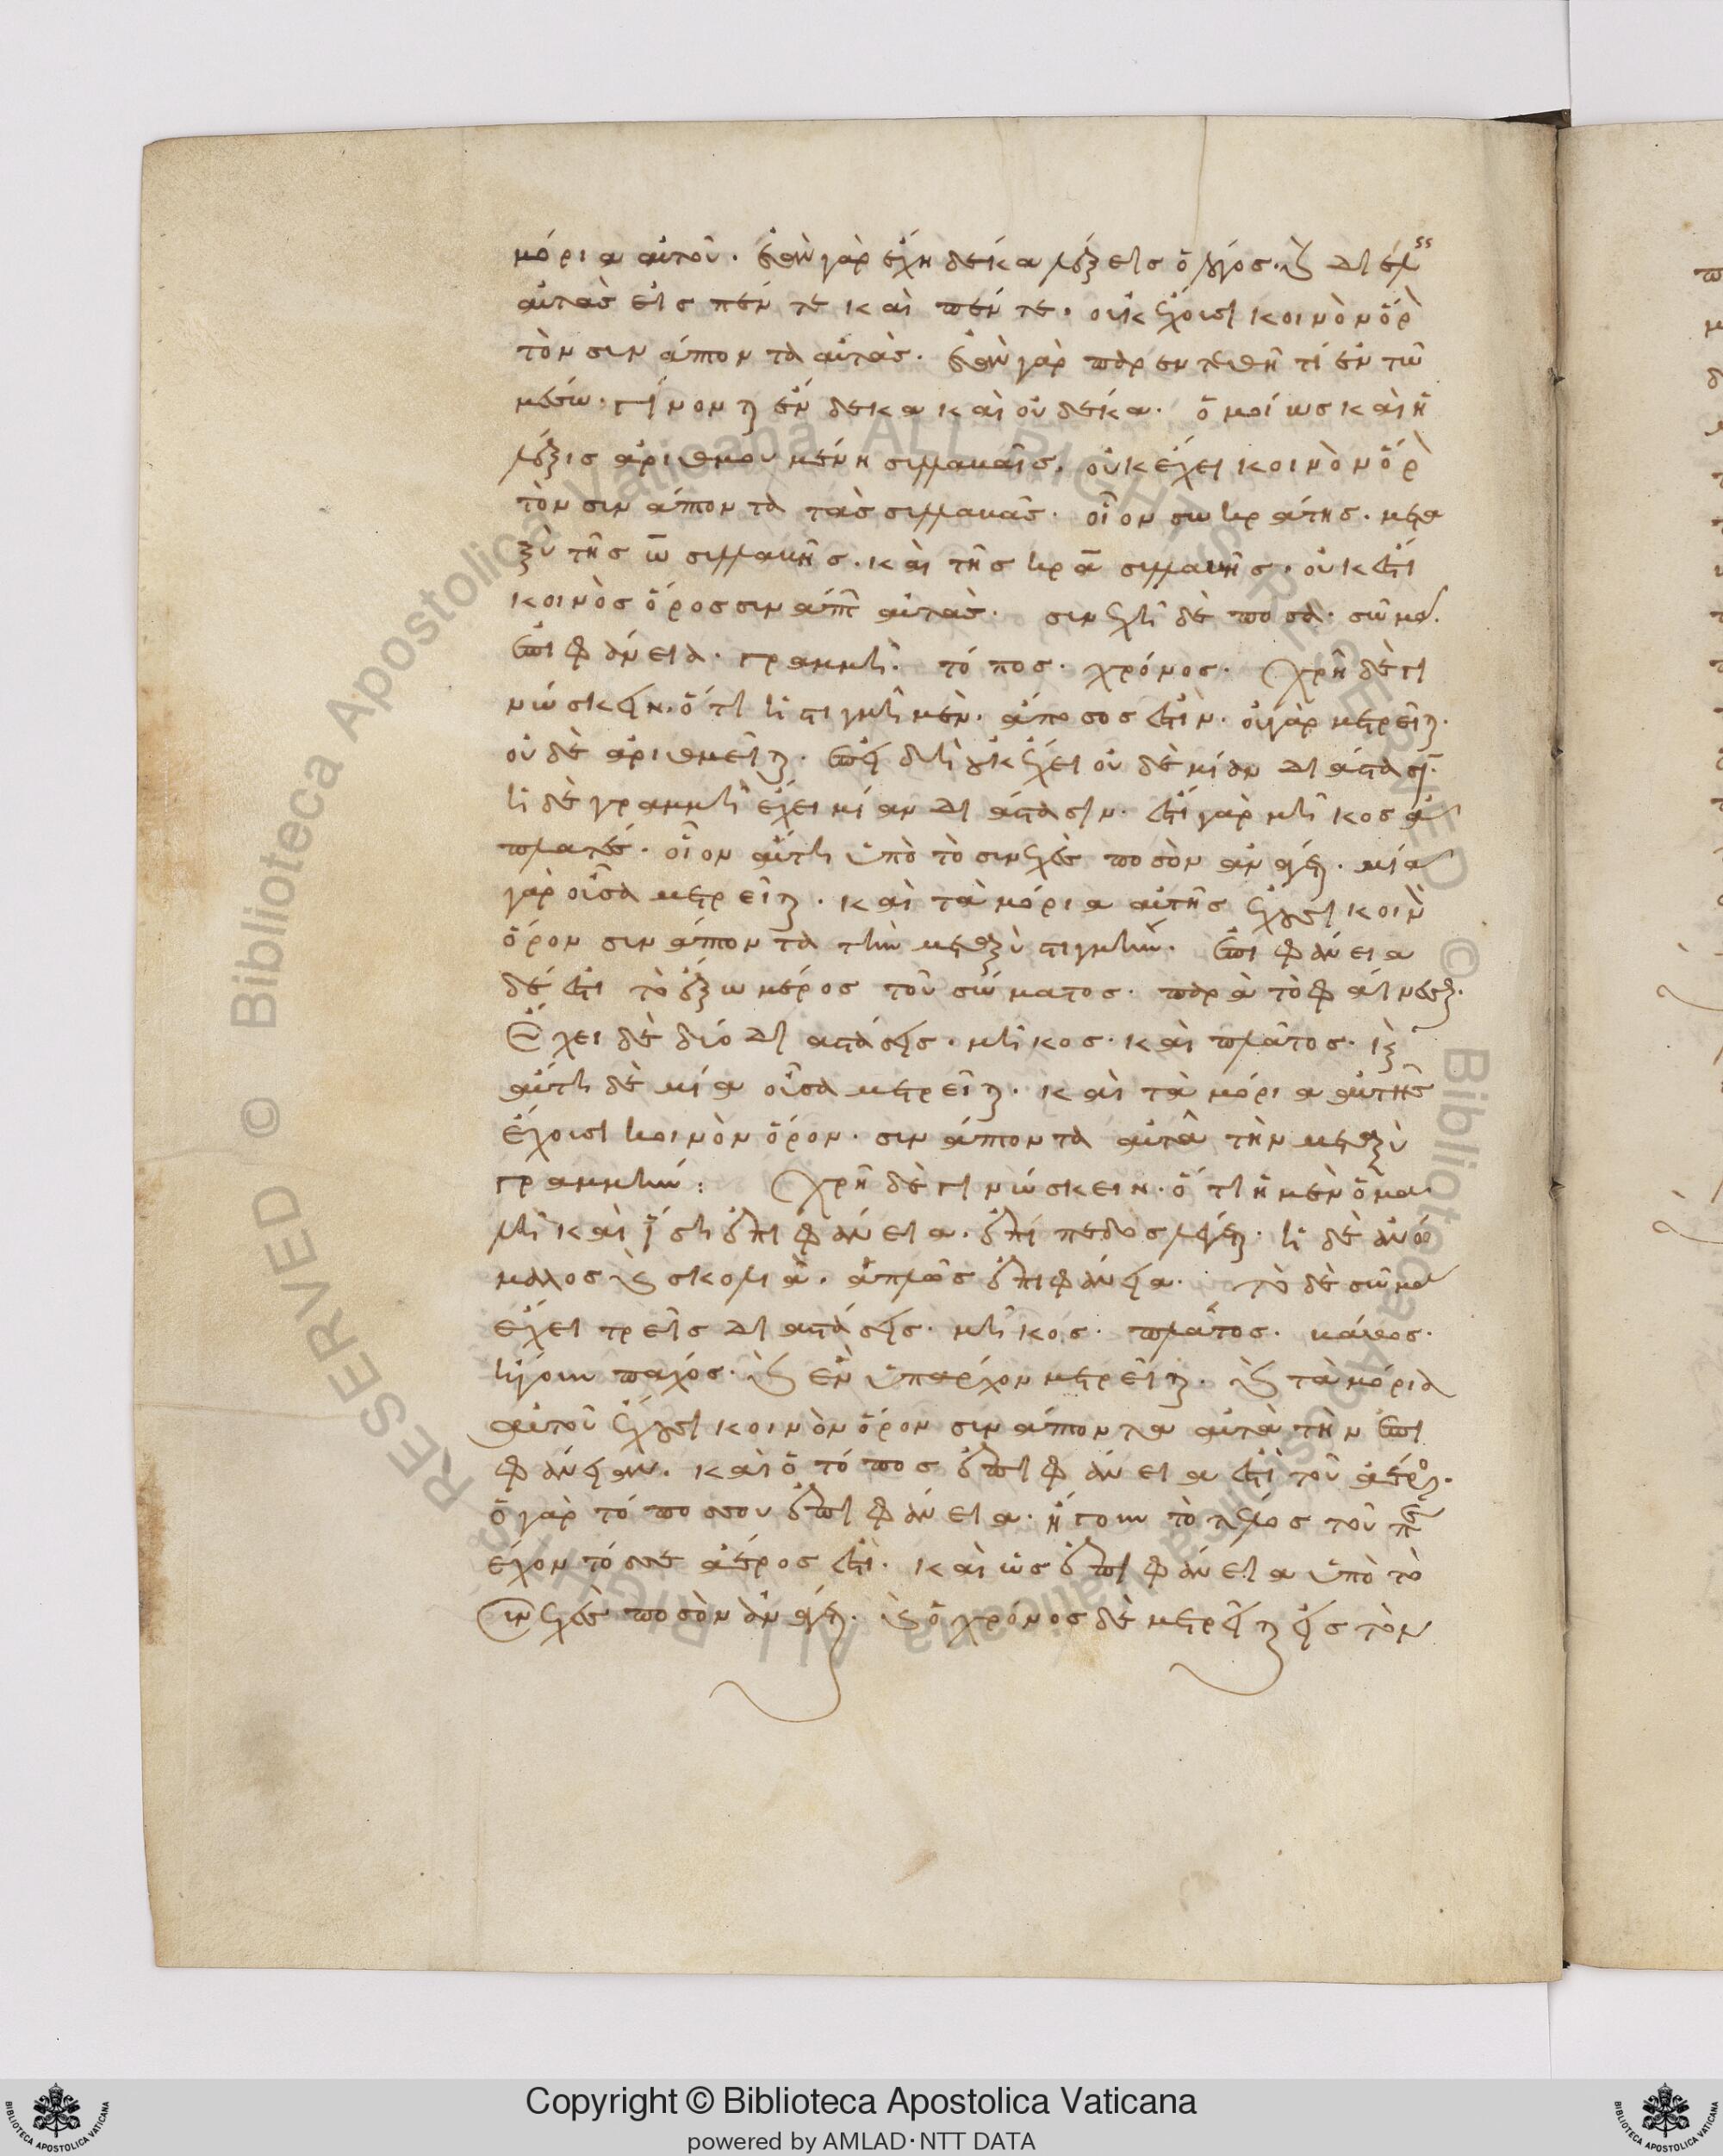 μόρια αὐτοῦ. ἐὰν γὰρ ἔχη δέκα λέξεις ὁ λόγος. καὶ διέλης
αὐτὰς εἰς πέντε καὶ πέντε. οὐκ ἔχουσι κοινὸν ὅρ
τὸν συνάπτοντα αὐτάς. ἐὰν γὰρ παρεντεθῆ τί ἐν τῶ
μέσω. γίνονται ἕνδεκα καὶ οὐ δέκα. ὁμοίως καὶ ἡ
λέξις ἀριθμουμένη συλλαβαῖς. οὐκ ἔχει κοινὸν ὅρ
τὸν συνάπτοντα τὰς συλλαβάς. οἷον σωκράτης. μετα
ξὺ τῆς ω συλλαβῆς. καὶ τῆς κρα συλλαβῆς. οὐκ ἔστι
κοινὸς ὅρος συνάπτ αὐτάς. συνεχῆ δὲ ποσά. σῶμα.
ἐπιφάνεια. γραμμή. τόπος. χρόνος. Χρὴ δὲ γι
νώσκειν. ὅτι ἡ στιγμὴ μὲν. ἄποσος ἐστίν. οὐ γὰρ μετρεῖται.
οὐδὲ ἀριθμεῖται. ἐπειδὴ οὐκ ἔχει οὐδὲ μίαν διάστασιν.
ἡ δὲ γραμμὴ ἔχει μίαν διάστασιν. ἔστι γὰρ μῆκος ἀ
πλατές. οἷον αὕτη ὑπὸ τὸ συνεχὲς ποσὸν ἀνάγεται. μία
γὰρ οὖσα μετρεῖται. καὶ τὰ μόρια αὐτῆς ἔχουσι κοινὸν
ὅρον συνάπτοντα τὴν μεταξὺ στιγμήν. ἐπιφάνεια
δέ ἐστι τὸ ἔξω μέρος τοῦ σώματος. παρὰ τὸ φαίνεσθαι.
Ἔχει δὲ δύο διαστάσεις. μῆκος. καὶ πλάτος. καὶ
αὕτη δὲ μία οὖσα μετρεῖται. καὶ τὰ μόρια αὐτῆς
ἔχουσι κοινὸν ὅρον. συνάπτοντα αὐτὰ τὴν μεταξὺ
γραμμήν: Χρὴ δὲ γινώσκειν. ὅτι ἡ μὲν ὁμα
λὴ καὶ ἴση ἐπιφάνεια. ἐπίπεδος λέγεται. ἡ δὲ ἀνώ
μαλος καὶ σκολιὰ. ἁπλῶς ἐπιφάνεια. τὸ δὲ σῶμα
ἔχει τρεῖς διαστάσεις. μῆκος. πλάτος. βάθος.
ἤγουν παχός. καὶ ἓν ὑπάρχον μετρεῖται. καὶ τὰ μόρια
αὐτοῦ ἔχουσι κοινὸν ὅρον συνάπτοντα αὐτὰ τὴν ἐπι
φάνειαν. καὶ ὁ τόπος ἐπιφάνεια ἐστὶ τοῦ ἀέρος.
ὁ γὰρ τόπος σου ἐπιφάνεια. ἤγουν τὸ τέλος τοῦ
έχοντός σε ἀέρος ἐστί. καὶ ὡς ἐπιφάνεια ὑπὸ τὸ
συνεχὲς ποσὸν ἀνάγεται. καὶ ὁ χρόνος δὲ μετρεῖται εἰς τὸν